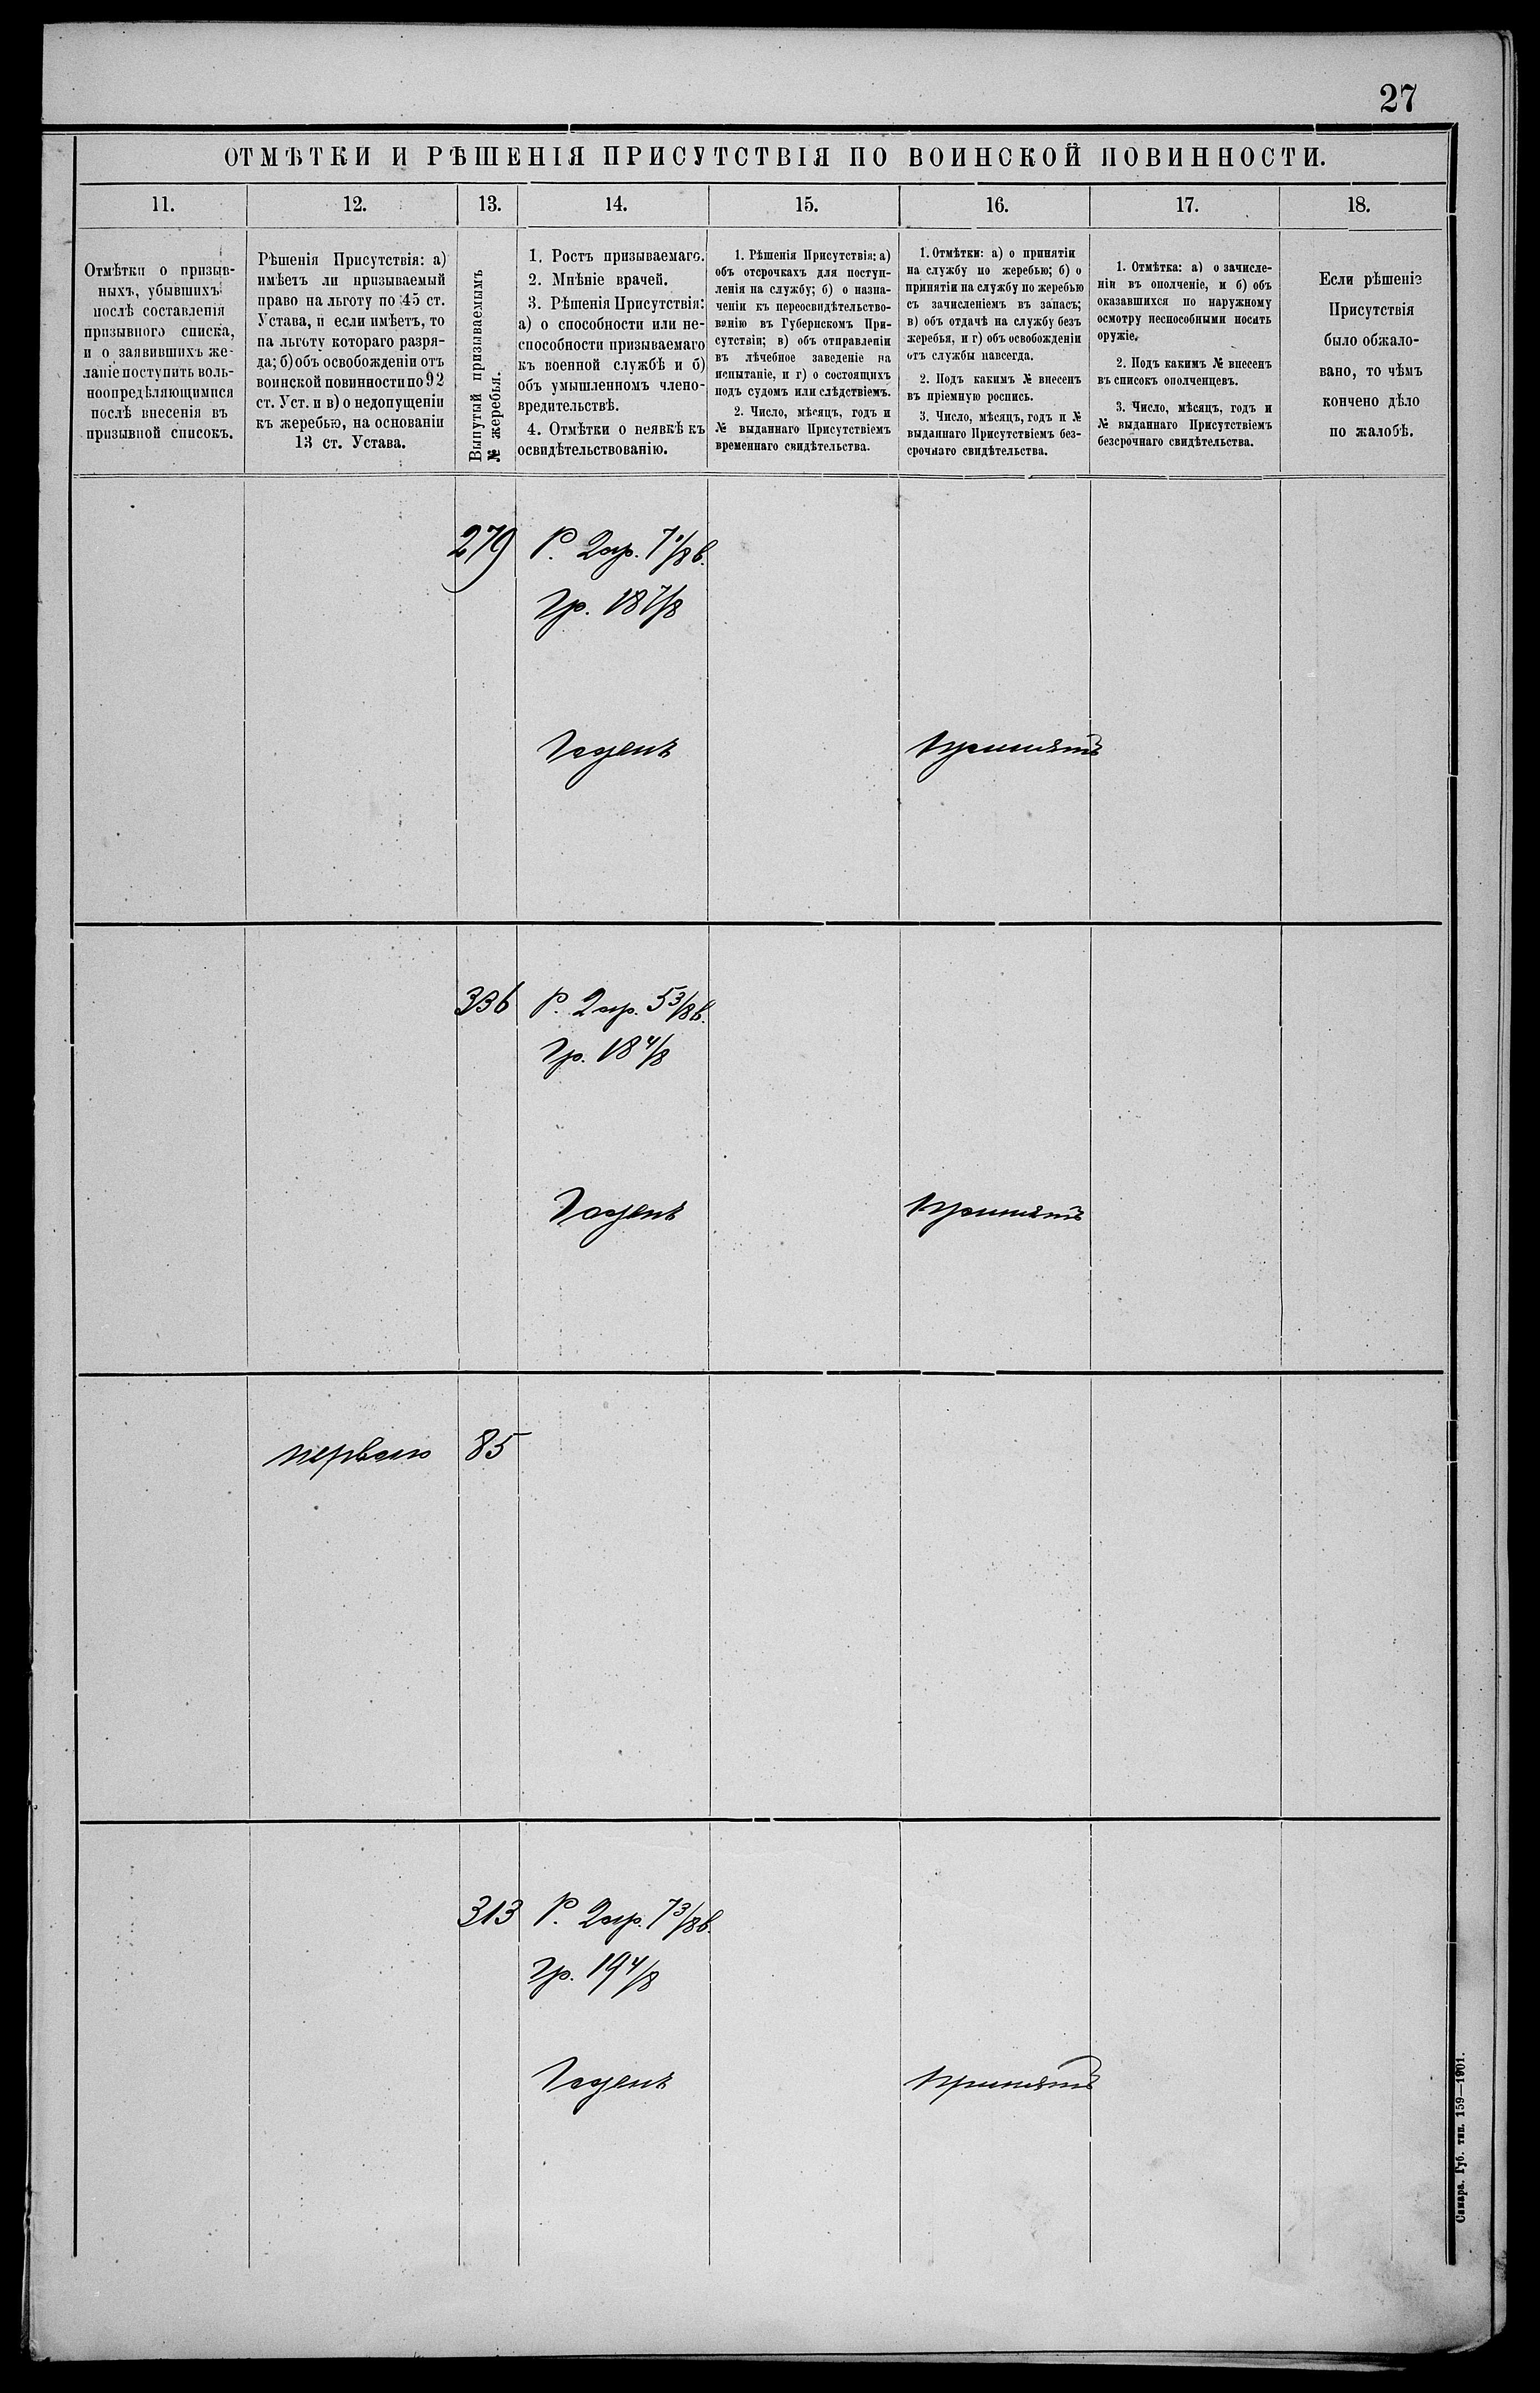 27
ОТМѢТКИ И РѢШЕНІЯ ПРИСУТСТВІЯ ПО ВОИНСКОЙ ПОВИННОСТИ.
11.
12.
13.
14.
15.
16.
17.
18.
Отмѣтки о призыв-
ныхъ, убывшихъ
послѣ составленія
призывного списка,
и о заявившихъ же-
ланіе поступить воль-
ноопредѣляющимися
послѣ внесенія въ
призывной списокъ.
Рѣшенія Присутствія: а)
имѣетъ ли призываемый
право на льготу по 45 ст.
Устава, и если имѣетъ, то
на льготу котораго разря-
да; б) объ освобожденіи отъ
воинской повинности по 92
ст. Уст. и в) о недопущеніи
къ жеребью, на основаніи
13 ст. Устава.
Вынутый призываемымъ
№ жеребья.
1. Ростъ призываемаго.
2. Мнѣніе врачей.
3. Рѣшенія Присутствія:
а) о способности или не-
способности призываемаго
къ военной службѣ и б)
объ умышленномъ члено-
вредительствѣ.
4. Отмѣтки о неявкѣ къ
освидѣтельствованію.
1. Рѣшенія Присутствія: а)
объ отсрочкахъ для поступ-
ленія на службу; б) о назна-
ченіи къ переосвидѣтельство-
ванію въ Губернскомъ При-
сутствіи; в) объ отправленіи
въ лѣчебное заведеніе на
испытаніе, и г) о состоящихъ
подъ судомъ или слѣдствіемъ.
2. Число, мѣсяцъ, годъ и
№ выданнаго Присутствіемъ
временнаго свидѣтельства.
1. Отмѣтки: а) о принятіи
на службу по жеребью; б) о
принятіи на службу по жеребью
съ зачисленіемъ въ запасъ;
в) объ отдачѣ на службу безъ
жеребья, и г) объ освобожденіи
отъ службы навсегда.
2. Подъ какимъ № внесенъ
въ пріемную роспись.
3. Число, мѣсяцъ, годъ и №
выданнаго Присутствіемъ без-
срочнаго свидѣтельства.
1. Отмѣтка: а) о зачисле-
ніи въ ополченіе, и б) объ
оказавшихся по наружному
осмотру неспособными носить
оружіе.
2. Подъ какимъ № внесенъ
въ списокъ ополченцевъ.
3. Число, мѣсяцъ, годъ и
№ выданнаго Присутствіемъ
безсрочнаго свидѣтельства.
Если рѣшеніе
Присутствія
было обжало-
вано, то чѣмъ
кончено дѣло
по жалобѣ.
279 Р. 2 ар. 7 1/8 в.
Гр. 18 7/8
Годенъ Принятъ
336 Р. 2 ар. 5 3/8 в.
Гр. 18 4/8
Годенъ Принятъ
перваго 85
313 Р. 2 ар. 7 3/8 в.
Гр. 19 4/8
Годенъ Принятъ
Самара. Губ. тип. 159—1901.